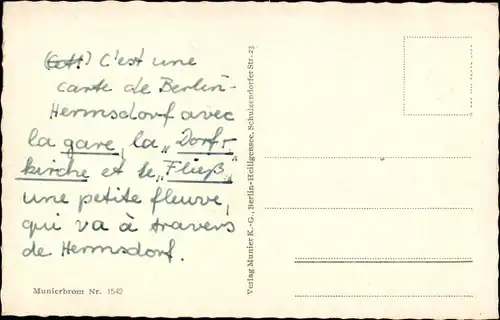 C'est une
carte de Berlin-
Hermsdorf avec
la gare, la „Dorf-
kirche" et le „Fließ"
une petite fleuve,
qui va à travers
de Hermsdorf.
Munierbrom Nr. 1542
Verlag Munier K.-G., Berlin-Heiligensee, Schulzendorfer Str. 23